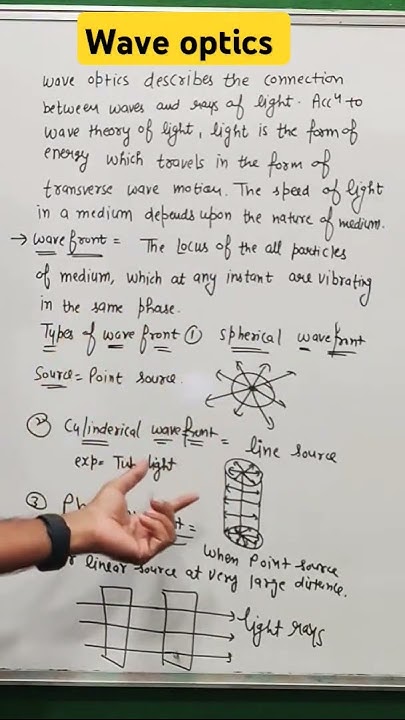 Wave optics
wave optics describes the connection
between waves and rays of light. Accⁿ to
wave theory of light, light is the form of
energy which travels in the form of
transverse wave motion. The speed of light
in a medium depends upon the nature of medium.
→ wave front = The Locus of the all particles
of medium, which at any instant are vibrating
in the same phase.
Types of wave front ① spherical wave front
Source = Point source.
② Cylinderical wave front = line source
exp = Tub light
③
when Point source
linear source at very large distance.
light rays